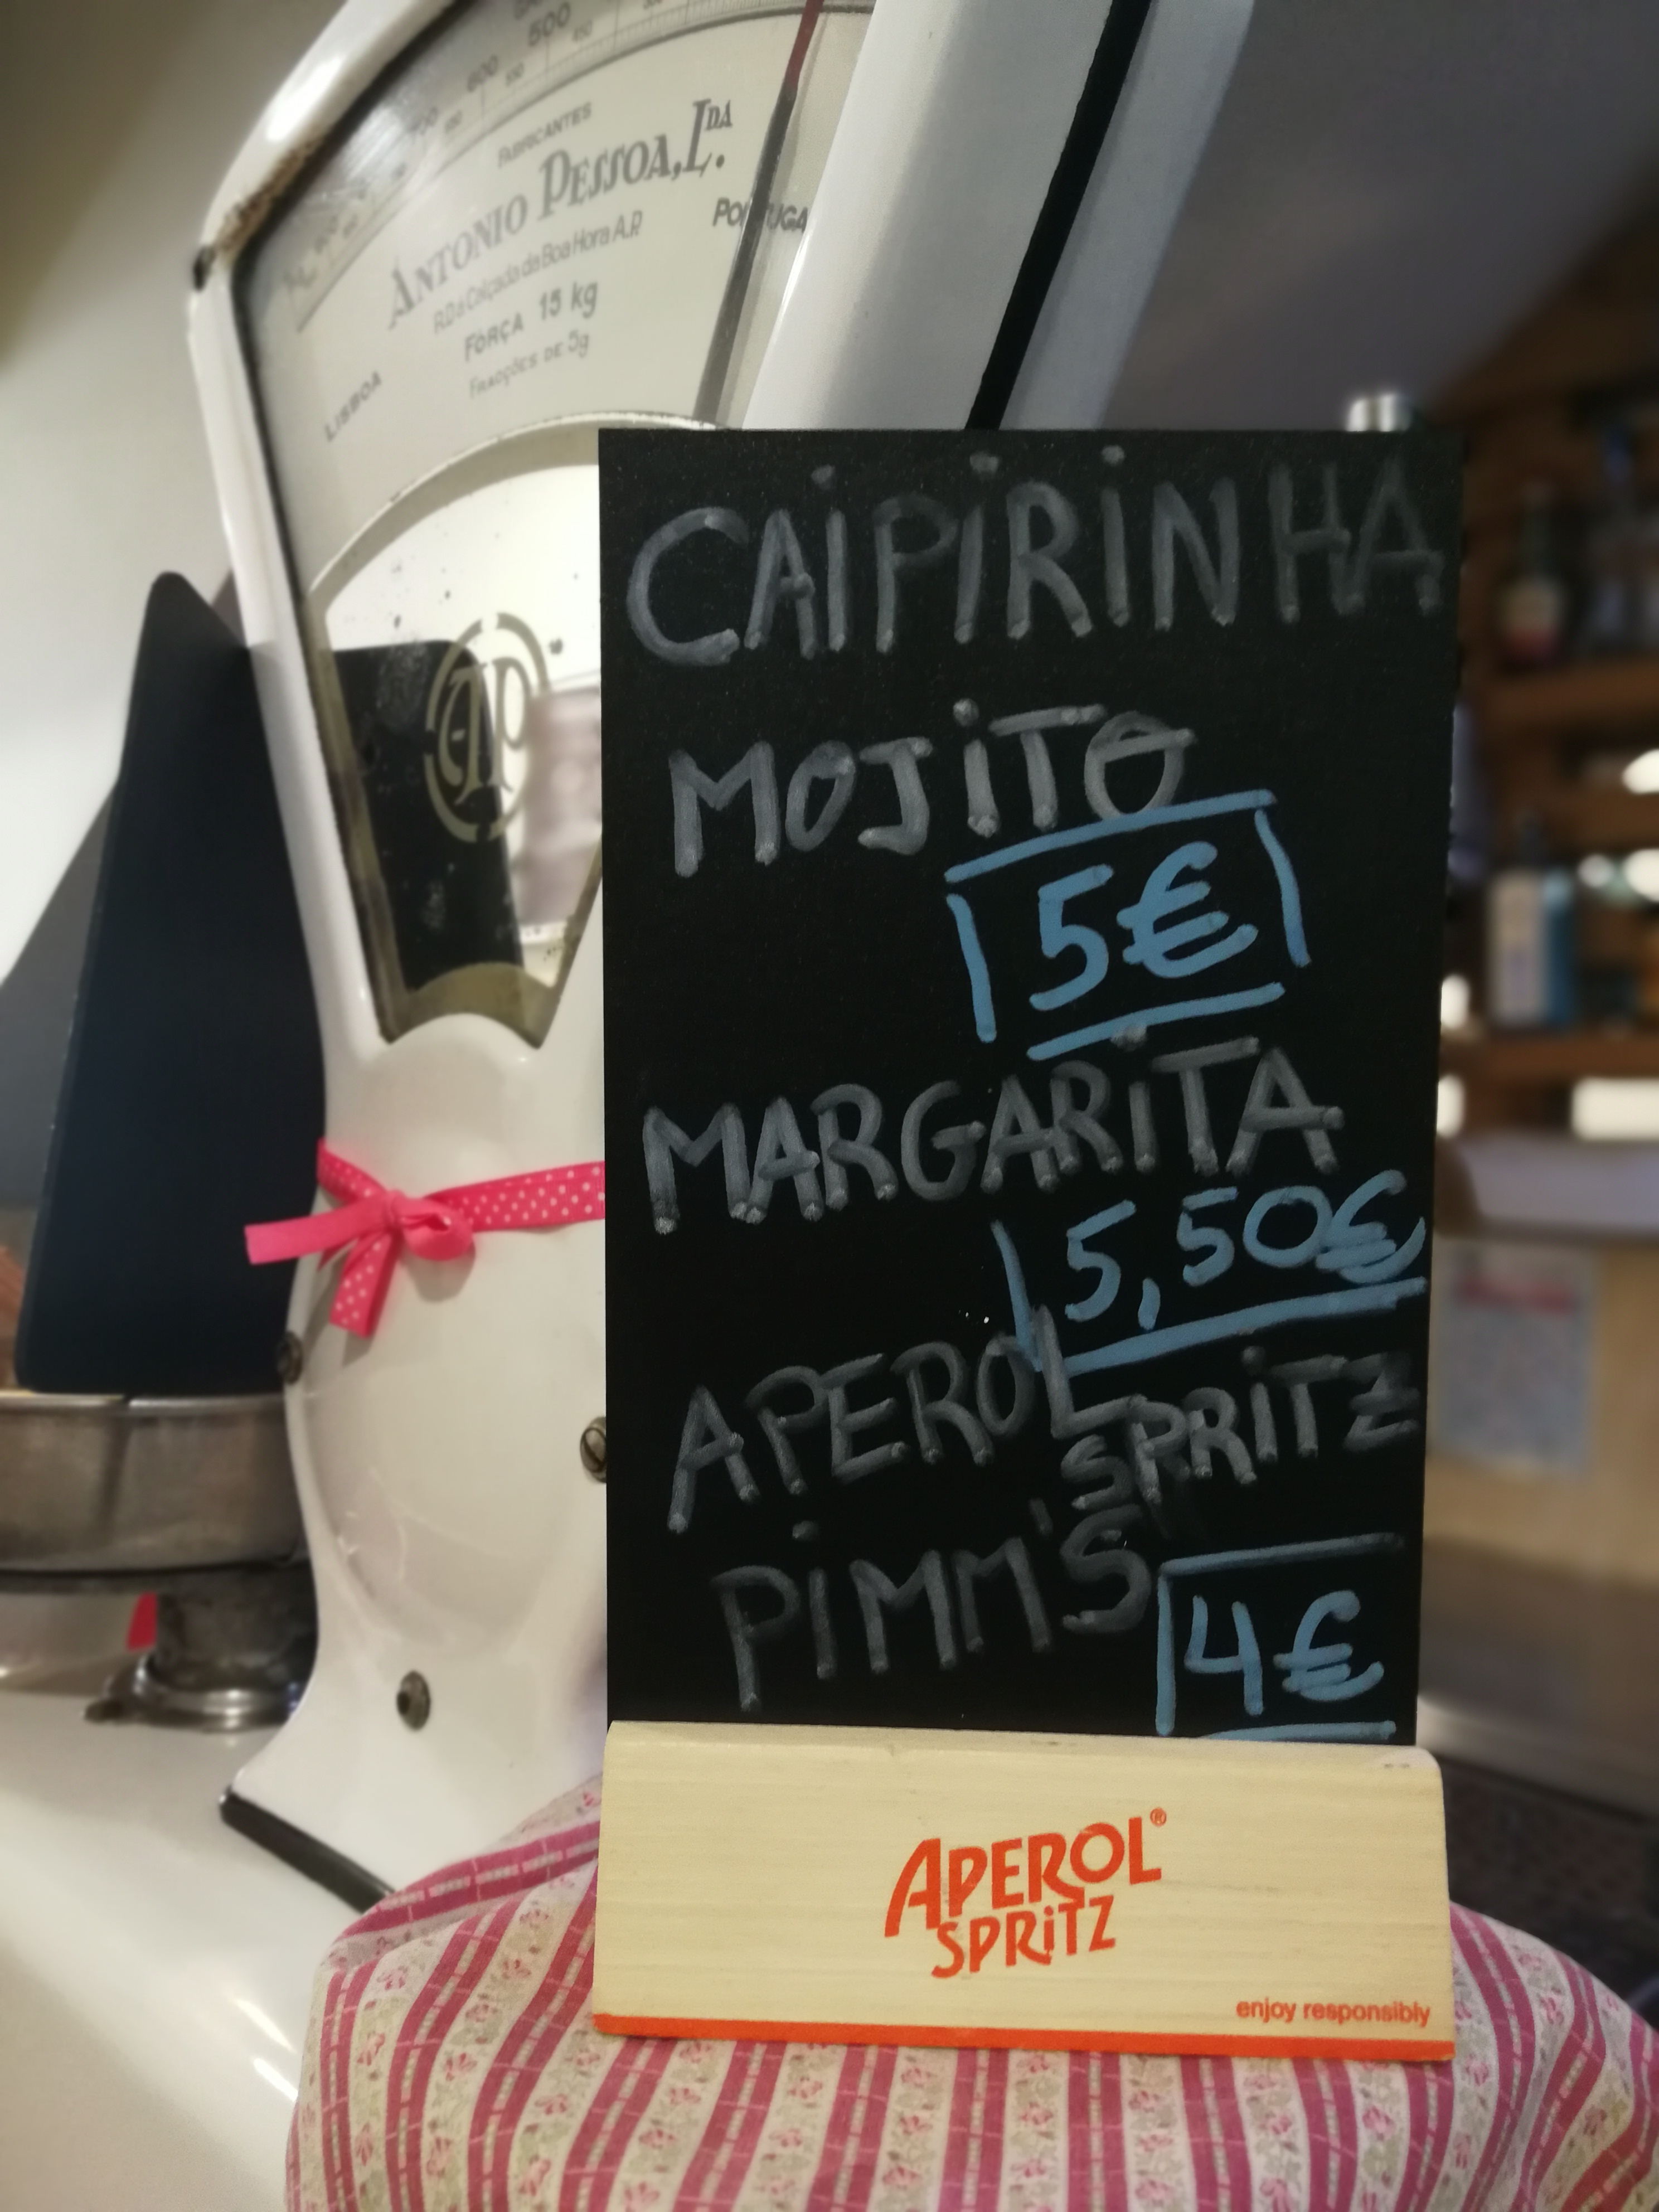 500
450
600
550
FABRICANTES
ANTONIO PESSOA, LDA.
PORTUGA
R.D a Calçada da Boa Hora A.P.
LISBOA
FÔRÇA 15 kg
FRACÇÕES DE 5g
AP
CAIPIRINHA
MOJITO
5€
MARGARITA
5,50€
APEROL
SPRITZ
PIMM'S
4€
APEROL®
SPRITZ
enjoy responsibly